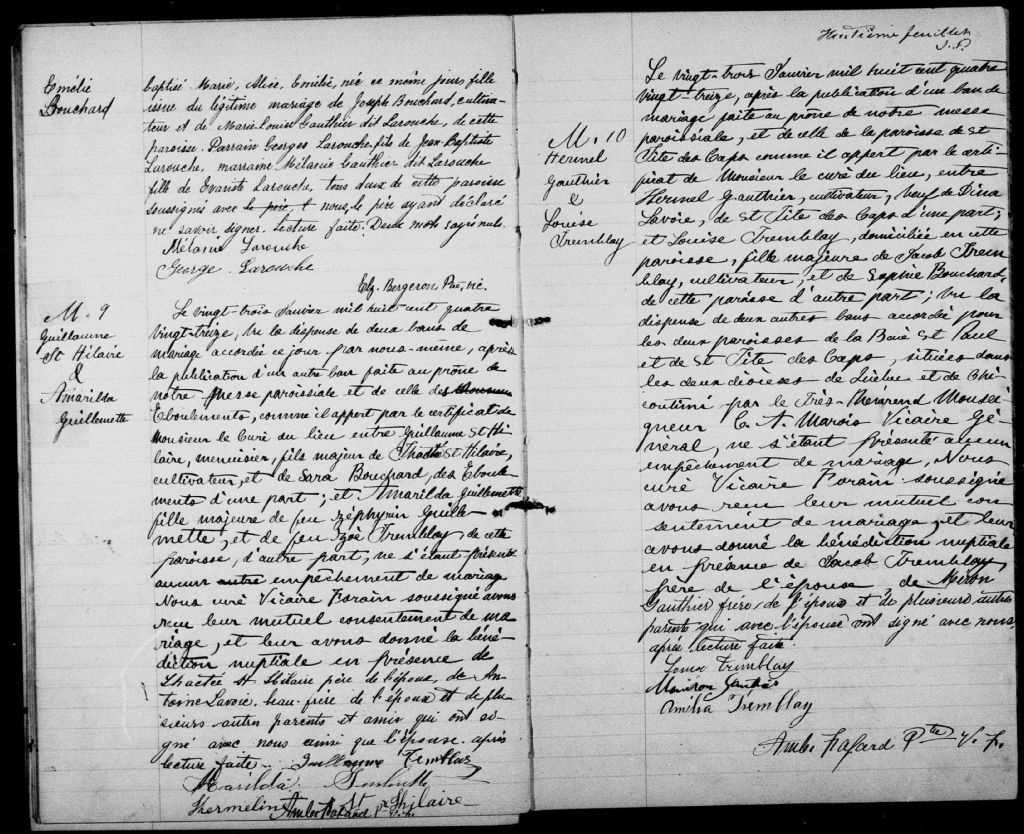 Emélie
Bouchard
baptisé Marie, Alice, Emélie, née ce même jour, fille
issue du légitime mariage de Joseph Bouchard, cultiva-
teur et de Marie Louise Gauthier dit Larouche, de cette
paroisse. Parrain Georges Larouche, fils de Jean-Baptiste
Larouche, marraine Mélanie Gauthier dit Larouche
fille de Evariste Larouche, tous deux de cette paroisse
soussignés avec le père & nous, le père ayant déclaré
ne savoir signer. Lecture faite. Deux mots rayés nuls.
Mélanie Larouche
George Larouche
Elz. Bergeron Ptre, vic.
M. 9
Guillaume
St Hilaire
&
Amarilda
Guillemette
Le vingt-trois Janvier mil huit cent quatre
vingt-treize, Vu la dispense de deux bans de
mariage accordée ce jour par nous-même, après
la publication d'un autre ban faite au prône de
notre Messe paroissiale et de celle des
Eboulements, comme il appert par le certificat de
Monsieur le Curé du lieu entre Guillaume St Hi-
laire, menuisier, fils majeur de St Hilaire,
cultivateur, et de Sara Bouchard, des Eboule-
ments d'une part; et Amarilda Guillemette
fille majeure de feu Zéphyrin Guille-
mette, et de feu Zoé Tremblay de cette
paroisse, d'autre part, ne s'étant présenté
aucun autre empêchement de mariage
Nous curé Vicaire Forain soussigné avons
reçu leur mutuel consentement de ma
riage, et leur avons donné la béné-
diction nuptiale en présence de
St Hilaire père de l'époux, de An-
toine Lavoie, beau-frère de l'époux et de plu-
sieurs autres parents et amis qui ont si-
gné avec nous ainsi que l'épouse. après
lecture faite. Guillaume Tremblay
Marilda
Hermeline St Hilaire
Ambr. Fafard Ptre
Huitième feuillet
M. 10
Hermel
Gauthier
&
Louise
Tremblay
Le vingt-trois Janvier mil huit cent quatre
vingt-treize, après la publication d'un ban de
mariage faite au prône de notre messe
paroissiale, et de celle de la paroisse de St
Tite des Caps comme il appert par le certi-
ficat de Monsieur le curé du lieu, entre
Hermel Gauthier, cultivateur, veuf de Dina
Lavoie, de St Tite des Caps d'une part;
et Louise Tremblay, domiciliée en cette
paroisse, fille majeure de Jacob Trem
blay, cultivateur, et de Sophie Bouchard,
de cette paroisse d'autre part; Vu la
dispense de deux autres bans accordée pour
les deux paroisses de la Baie St Paul
et de St Tite des Caps, situées dans
les deux diocèses de Québec et de Chi
coutimi par le Très-Révérend Monsei
gneur C. A. Marois Vicaire Gé-
néral, ne s'étant présenté aucun
empêchement de mariage, Nous
curé Vicaire Forain soussigné
avons reçu leur mutuel con
sentement de mariage, et leur
avons donné la bénédiction nuptiale
en présence de Jacob Tremblay,
frère de l'épouse, de
Gauthier frère, de l'époux et de plusieurs autres
parents qui avec l'épouse ont signé avec nous,
après lecture faite.
Louise Tremblay
Amélia Tremblay
Ambr. Fafard Ptre V. F.